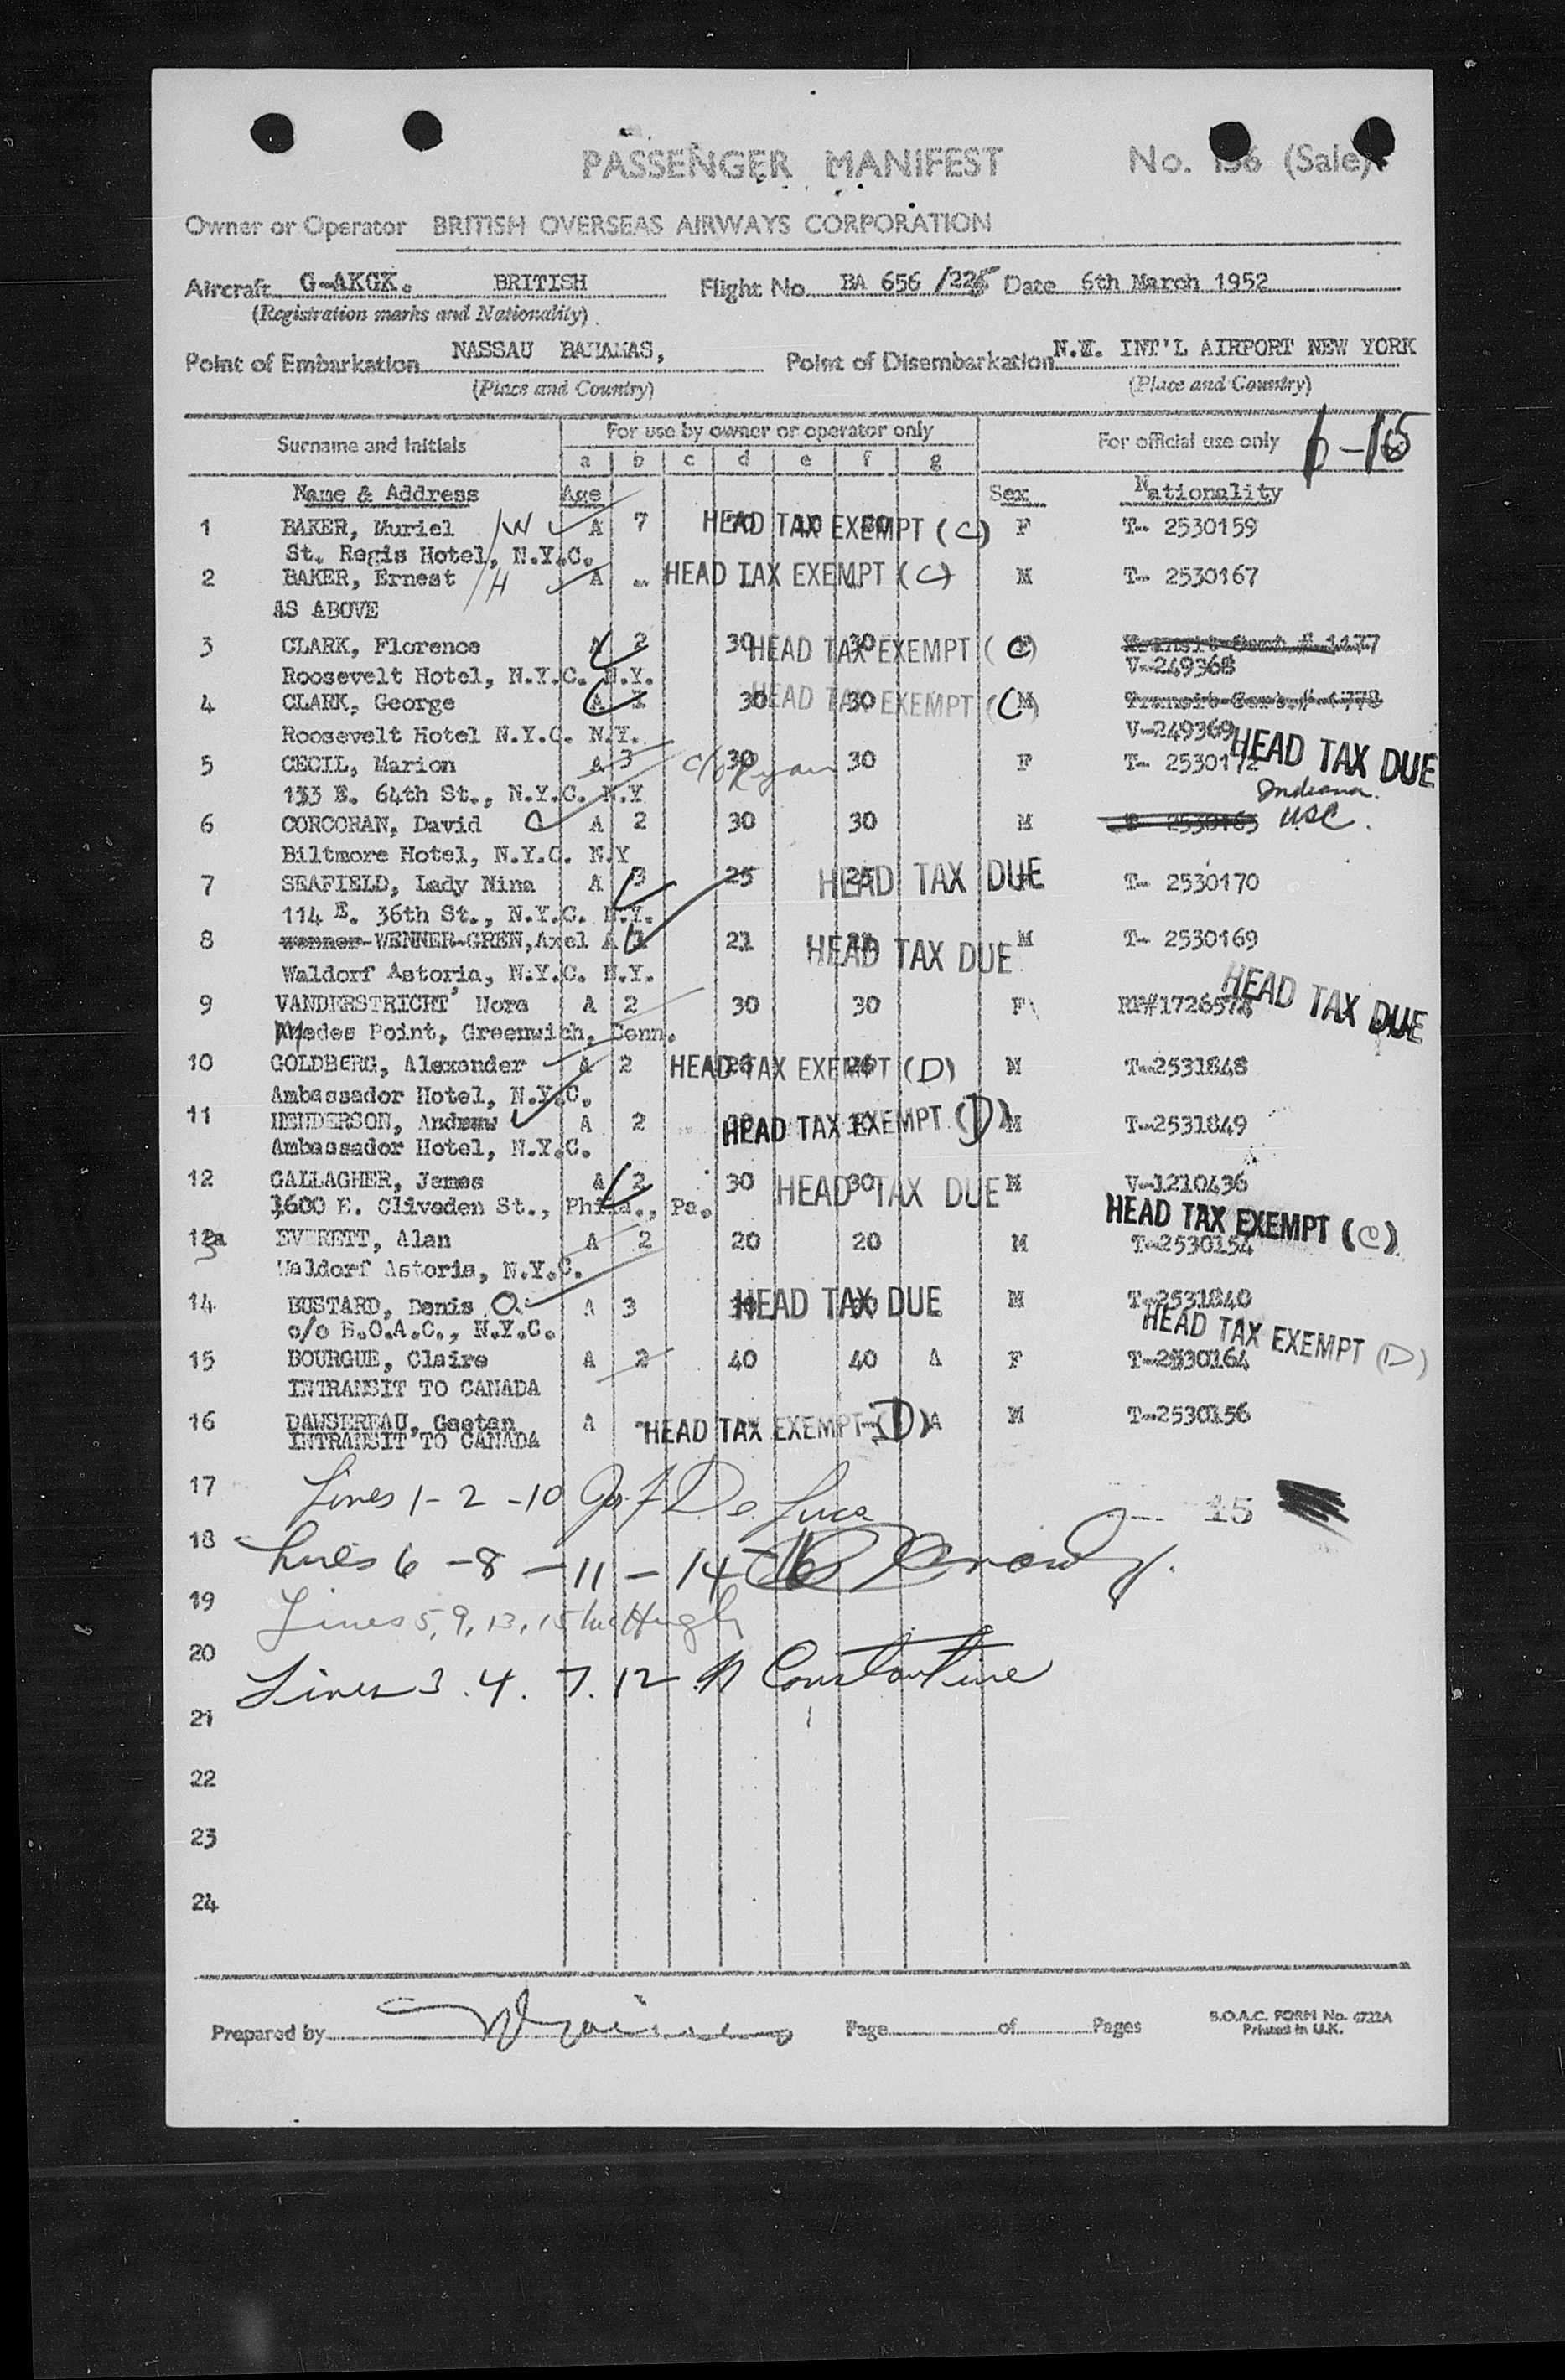 PASSENGER MANIFEST No. 136 (Sale)
Owner or Operator BRITISH OVERSEAS AIRWAYS CORPORATION
Aircraft G-AKGK. BRITISH Flight No. BA 656 /225 Date 6th March 1952
(Registration marks and Nationality)
Point of Embarkation NASSAU BAHAMAS, Point of Disembarkation N.Y. INT'L AIRPORT NEW YORK
(Place and Country) (Place and Country)
Surname and Initials For use by owner or operator only For official use only
a b c d e f g
Name & Address Age Sex Nationality
1 BAKER, Muriel /W A 7 HEAD TAX EXEMPT (C) F T- 2530159
St. Regis Hotel, N.Y.C.
2 BAKER, Ernest /H A HEAD TAX EXEMPT (C) M T- 2530167
AS ABOVE
3 CLARK, Florence A 2 30 HEAD TAX EXEMPT (C) 30 Transit Cert # 1177
Roosevelt Hotel, N.Y.C. N.Y. V-249368
4 CLARK, George A 30 HEAD TAX EXEMPT (C) 30 M Transit Cert.# 1778
Roosevelt Hotel N.Y.C. N.Y. V-249369
5 CECIL, Marion A 3 c/o Ryan 30 30 F T- 2530172 HEAD TAX DUE
133 E. 64th St., N.Y.C. N.Y Indiana.
6 CORCORAN, David A 2 30 30 M T- 2530165 USC.
Biltmore Hotel, N.Y.C. N.Y
7 SEAFIELD, Lady Nina A 3 25 25 HEAD TAX DUE T- 2530170
114 E. 36th St., N.Y.C. N.Y.
8 wenner-WENNER-GREN,Axel A 21 HEAD TAX DUE M T- 2530169
Waldorf Astoria, N.Y.C. N.Y.
9 VANDERSTRICHT Nora A 2 30 30 F RP#1726578 HEAD TAX DUE
Meades Point, Greenwich, Conn.
10 GOLDBERG, Alexander A 2 HEAD TAX EXEMPT (D) M T-2531848
Ambassador Hotel, N.Y.C.
11 HENDERSON, Andrew A 2 HEAD TAX EXEMPT (D) M T-2531849
Ambassador Hotel, N.Y.C.
12 GALLAGHER, James A 2 30 30 HEAD TAX DUE M V-1210436
1600 E. Cliveden St., Phila., Pa. HEAD TAX EXEMPT (C)
13 EVERETT, Alan A 2 20 20 M T-2530154
Waldorf Astoria, N.Y.C.
14 BUSTARD, Denis O. A 3 HEAD TAX DUE M T-2531840
c/o B.O.A.C., N.Y.C. HEAD TAX EXEMPT (D)
15 BOURGUE, Claire A 2 40 40 A F T-2530164
INTRANSIT TO CANADA
16 DAWSEREAU, Gaetan A HEAD TAX EXEMPT (D) A M T-2530156
INTRANSIT TO CANADA
17 Lines 1-2-10 Jos F De Luca 15
18 Lines 6-8-11-14-16
19 Lines 5, 9, 13, 15 McHugh
20 Lines 3. 4. 7. 12 N Constantine
21
22
23
24
Prepared by Page of Pages B.O.A.C. FORM No. 4722A
Printed in U.K.